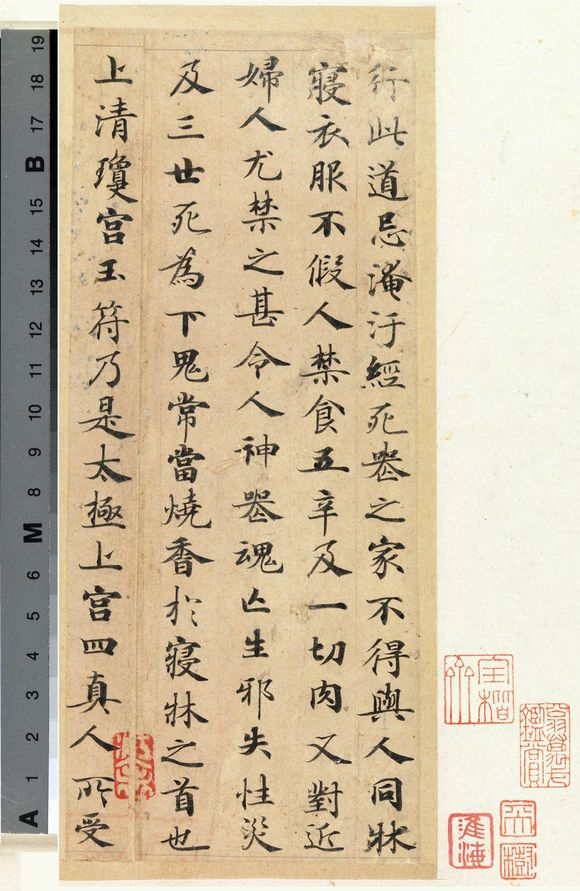 行此道忌淹汙經死喪之家不得與人同牀
寢衣服不假人禁食五辛及一切肉又對近
婦人尤禁之甚令人神喪魂亡生邪失性災
及三世死為下鬼常當燒香於寢牀之首也
上清瓊宮玉符乃是太極上宮四真人所受
翁萬戈鑑賞
A 1 2 3 4 5 6 M 8 9 10 11 12 13 14 15 B 17 18 19